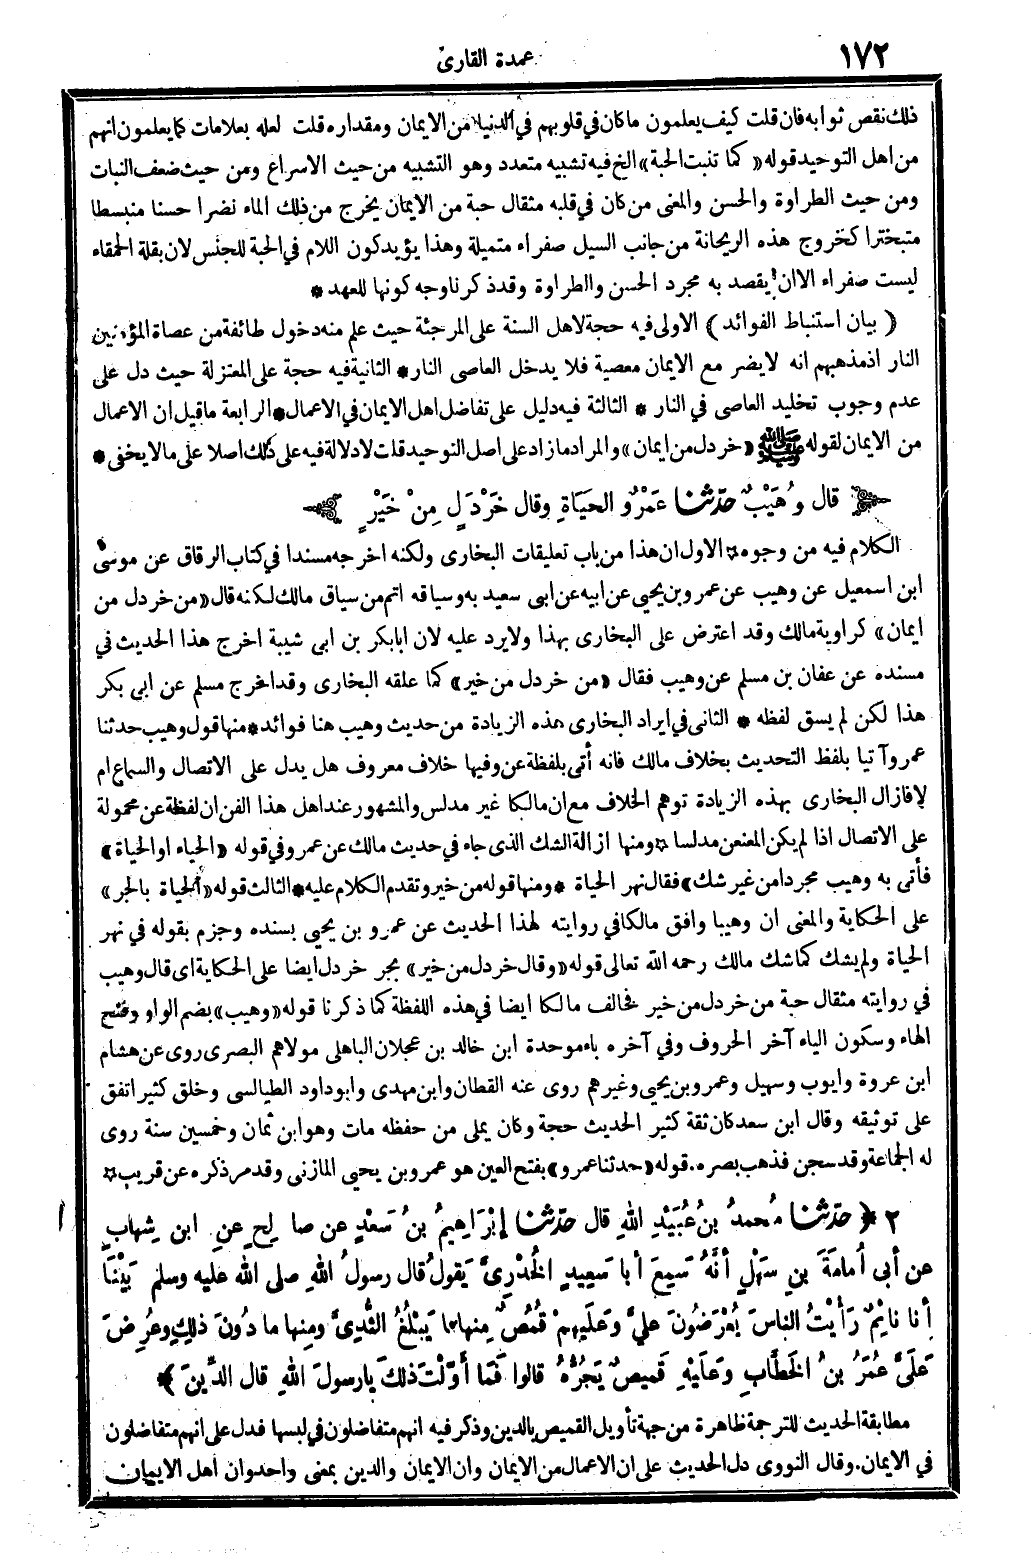 ١٧٢
عمدة القارئ
ذلك نقص ثوابه فان قلت كيف يعلمون ما كان في قلوبهم في الدنيا من الايمان ومقداره قلت لعله بعلامات كما يعلمون انهم
من اهل التوحيد قوله «كما تنبت الحبة» الخ فيه تشبيه متعدد وهو التشبيه من حيث الاسراع ومن حيث ضعف النبات
ومن حيث الطراوة والحسن والمعنى من كان في قلبه مثقال حبة من الايمان يخرج من ذلك الماء نضرا حسنا منبسطا
متبخترا كخروج هذه الريحانة من جانب السيل صفراء متميلة وهذا يؤيد كون اللام في الحبة للجنس لان بقلة الحمقاء
ليست صفراء الا ان يقصد به مجرد الحسن والطراوة وقد ذكرنا وجه كونها للعهد *
( بيان استنباط الفوائد ) الاولى فيه حجة لاهل السنة على المرجئة حيث علم منه دخول طائفة من عصاة المؤمنين
النار اذ مذهبهم انه لا يضر مع الايمان معصية فلا يدخل العاصى النار * الثانية فيه حجة على المعتزلة حيث دل على
عدم وجوب تخليد العاصى في النار * الثالثة فيه دليل على تفاضل اهل الايمان في الاعمال * الرابعة ما قيل ان الاعمال
من الايمان لقوله ﷺ «خردل من ايمان» والمراد ما زاد على اصل التوحيد قلت لا دلالة فيه على ذلك اصلا على ما لا يخفى *
قال وُهَيْبٌ حدّثنا عَمْرٌو الحَيَاةِ وقال خَرْدَلٍ مِنْ خَيْرٍ
الكلام فيه من وجوه * الاول ان هذا من باب تعليقات البخارى ولكنه اخرجه مسندا في كتاب الرقاق عن موسى
ابن اسمعيل عن وهيب عن عمرو بن يحيى عن ابيه عن ابى سعيد به وسياقه اتم من سياق مالك لكنه قال «من خردل من
ايمان» كرواية مالك وقد اعترض على البخارى بهذا ولا يرد عليه لان ابا بكر بن ابى شيبة اخرج هذا الحديث في
مسنده عن عفان بن مسلم عن وهيب فقال «من خردل من خير» كما علقه البخارى وقد اخرج مسلم عن ابى بكر
هذا لكن لم يسق لفظه * الثانى في ايراد البخارى هذه الزيادة من حديث وهيب هنا فوائد * منها قول وهيب حدثنا
عمرو آتيا بلفظ التحديث بخلاف مالك فانه أتى بلفظة عن وفيها خلاف معروف هل يدل على الاتصال والسماع ام
لا فازال البخارى بهذه الزيادة توهم الخلاف مع ان مالكا غير مدلس والمشهور عند اهل هذا الفن ان لفظة عن محمولة
على الاتصال اذا لم يكن المعنعن مدلسا * ومنها ازالة الشك الذى جاء في حديث مالك عن عمرو في قوله «الحياء او الحياة»
فأتى به وهيب مجردا من غير شك» فقال نهر الحياة * ومنها قوله من خير وتقدم الكلام عليه * الثالث قوله «الحياة بالجر»
على الحكاية والمعنى ان وهيبا وافق مالكا في روايته لهذا الحديث عن عمرو بن يحيى بسنده وجزم بقوله في نهر
الحياة ولم يشك كما شك مالك رحمه الله تعالى قوله «وقال خردل من خير» بجر خردل ايضا على الحكاية اى قال وهيب
في روايته مثقال حبة من خردل من خير فخالف مالكا ايضا في هذه اللفظة كما ذكرنا قوله «وهيب» بضم الواو وفتح
الهاء وسكون الياء آخر الحروف وفي آخره باء موحدة ابن خالد بن عجلان الباهلى مولاهم البصرى روى عن هشام
ابن عروة وايوب وسهيل وعمرو بن يحيى وغيرهم روى عنه القطان وابن مهدى وابو داود الطيالسى وخلق كثير اتفق
على توثيقه وقال ابن سعد كان ثقة كثير الحديث حجة وكان يملى من حفظه مات وهو ابن ثمان وخمسين سنة روى
له الجماعة وقد سجن فذهب بصره . قوله «حدثنا عمرو» بفتح العين هو عمرو بن يحيى المازنى وقد مر ذكره عن قريب *
٢ ﴿ حدّثنا مُحمدُ بنُ عُبَيْدِ اللهِ قال حدّثنا إبْرَاهِيمُ بنُ سَعْدٍ عن صالِحٍ عنِ ابنِ شِهابٍ
عن أبى أُمامَةَ بنِ سَهْلٍ أنَّهُ سَمِعَ أبا سَعِيدٍ الخُدْرِىَّ يَقولُ قال رسولُ اللهِ صلى الله عليه وسلم بَيْنَا
أنا نائِمٌ رَأيْتُ الناسَ يُعْرَضُونَ علىَّ وعَلَيهِمْ قُمُصٌ مِنها ما يَبْلُغُ الثُّدِىَّ ومِنها ما دُونَ ذلِكَ وعُرِضَ
عَلَىَّ عُمَرُ بنُ الخَطَّابِ وَعَلَيْهِ قَمِيصٌ يَجُرُّهُ قالوا فَمَا أوَّلْتَ ذلكَ يا رسولَ اللهِ قال الدِّينَ ﴾ *
مطابقة الحديث للترجمة ظاهرة من جهة تأويل القميص بالدين وذكر فيه انهم متفاضلون في لبسها فدل على انهم متفاضلون
في الايمان . وقال النووى دل الحديث على ان الاعمال من الايمان وان الايمان والدين بمعنى واحد وان اهل الايمان